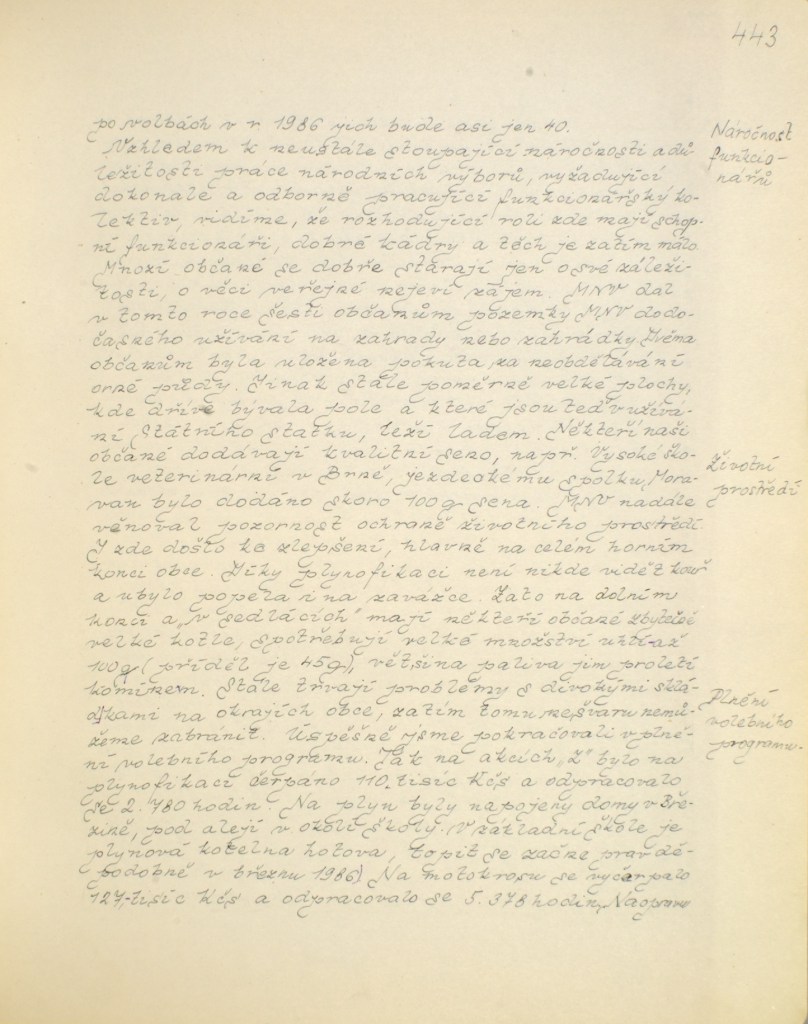 443
po volbách v r. 1986 jich bude asi jen 40.
Náročnost
funkcio-
nářů
Vzhledem k neustále stoupající náročnosti a dů-
ležitosti práce národních výborů, vyžadující
dokonale a odborně pracující funkcionářský ko-
lektiv, vidíme, že rozhodující roli zde mají schop-
ní funkcionáři, dobré kádry a těch je zatím málo.
Mnozí občané se dobře starají jen o své záleži-
tosti, o věci veřejné nejeví zájem. MNV dal
v tomto roce šesti občanům pozemky MNV do do-
časného užívání na zahrady nebo zahrádky. Dvěma
občanům byla uložena pokuta za neobdělávání
orné půdy. Jinak stále poměrně velké plochy,
kde dříve bývala pole a které jsou teď v užívá-
ní Státního statku, leží ladem. Někteří naši
občané dodávají kvalitní seno, např. Vysoké ško-
le veterinární v Brně, jezdeckému spolku Mora-
van bylo dodáno skoro 100 q sena. MNV nadále
Životní
prostředí
věnoval pozornost ochraně životního prostředí.
I zde došlo ke zlepšení, hlavně na celém horním
konci obce. Díky plynofikaci není nikde vidět kouř
a ubylo popela i na zavážce. Zato na dolním
konci a „v sedlácích" mají někteří občané zbytečně
velké kotle, spotřebují velké množství uhlí až
100 q (příděl je 45 q), většina paliva jim proletí
komínem. Stále trvají problémy s divokými sklá-
dkami na okrajích obce, zatím tomu nešvaru nemů-
žeme zabránit. Úspěšně jsme pokračovali v plně-
Plnění
volebního
programu.
ní volebního programu. Tak na akcích „Z" bylo na
plynofikaci čerpáno 110 tisíc Kčs a odpracovalo
se 2.780 hodin. Na plyn byly napojeny domy v Bře-
zině, pod alejí v okolí školy. V základní škole je
plynová kotelna hotova, topit se začne pravdě-
podobně v březnu 1986. Na motokrosu se vyčerpalo
127,-tisíc Kčs a odpracovalo se 5.378 hodin. Na opravu